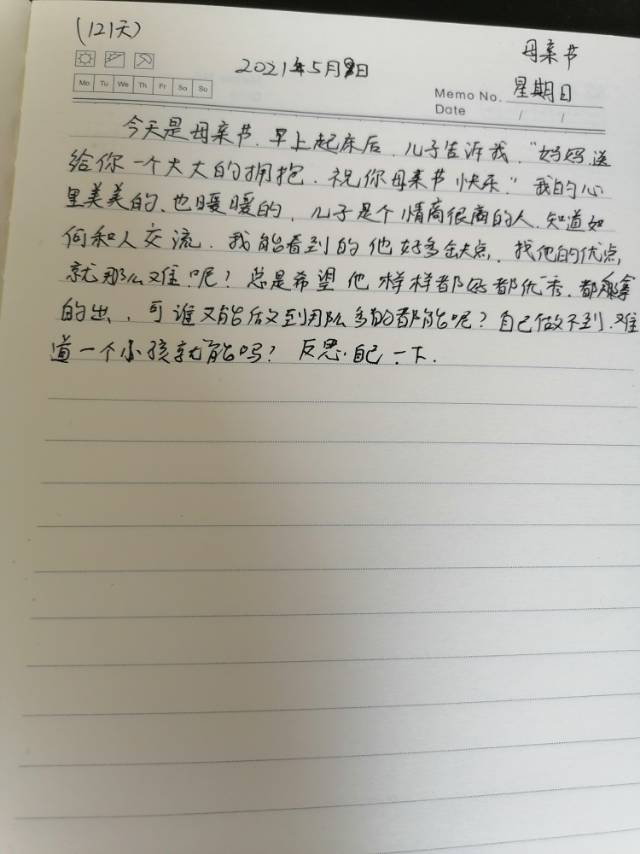 (121天)
母亲节
2021年5月9日
Mo Tu We Th Fr Sa Su
Memo No. 星期日
Date / /
今天是母亲节.早上起床后.儿子告诉我."妈妈送
给你一个大大的拥抱.祝你母亲节快乐."我的心
里美美的、也暖暖的.儿子是个情商很高的人.知道如
何和人交流.我能看到的他好多缺点.找他的优点,
就那么难呢?总是希望他样样都好都优秀.都能拿
的出.可谁又能做到那么多的都能呢?自己做不到.难
道一个小孩就能吗?反思自己一下.